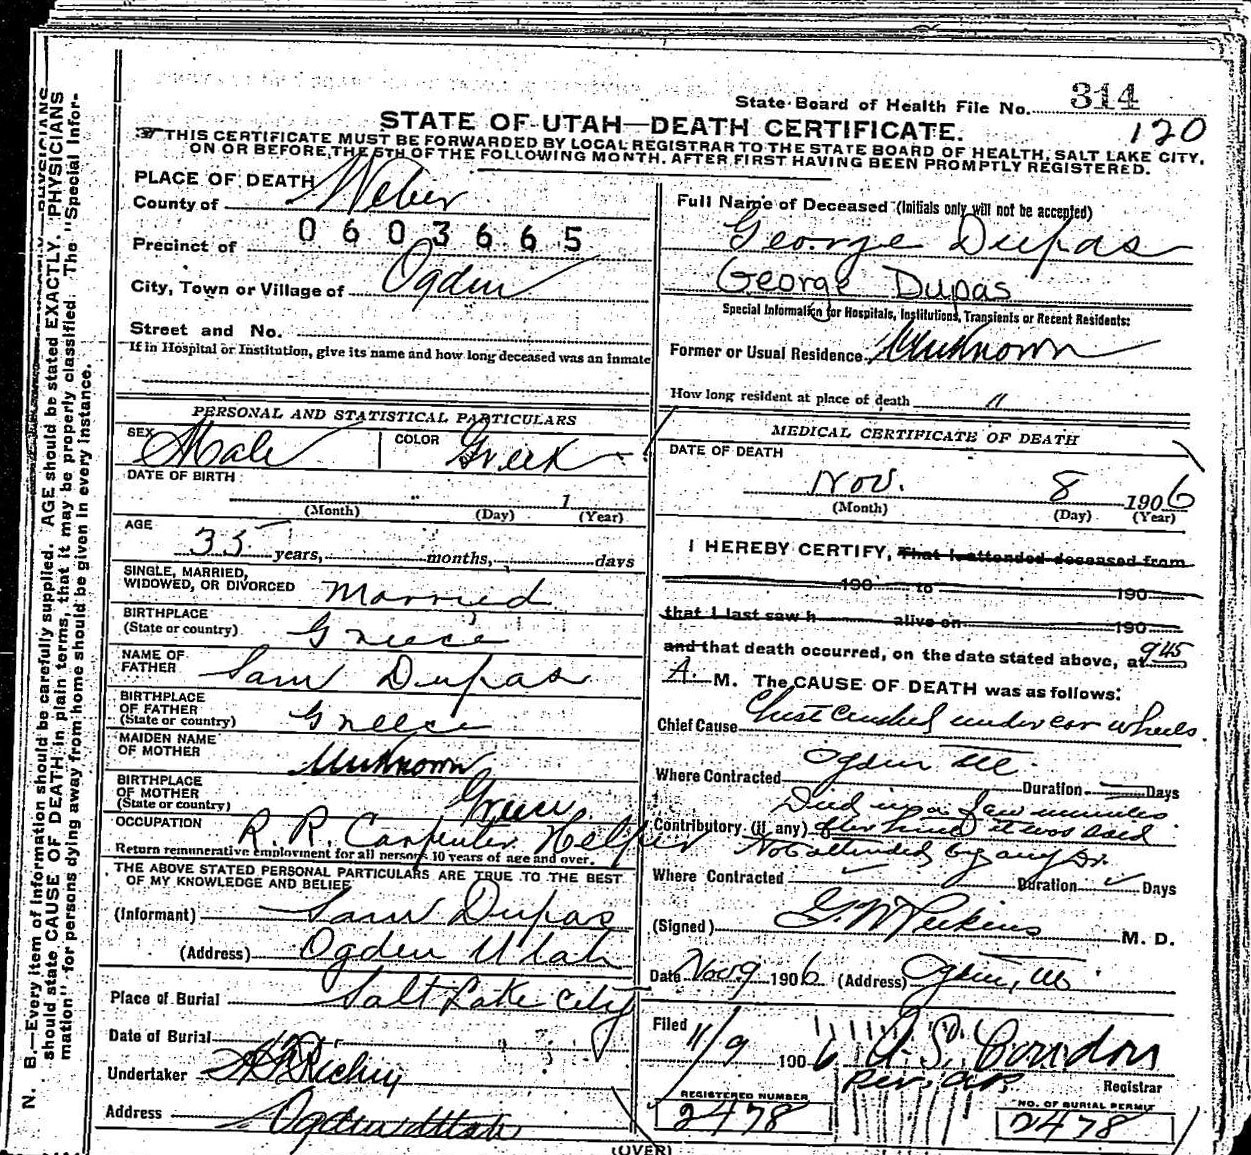 State Board of Health File No. 314
120
STATE OF UTAH—DEATH CERTIFICATE.
THIS CERTIFICATE MUST BE FORWARDED BY LOCAL REGISTRAR TO THE STATE BOARD OF HEALTH, SALT LAKE CITY,
ON OR BEFORE THE 5TH OF THE FOLLOWING MONTH. AFTER FIRST HAVING BEEN PROMPTLY REGISTERED.
PLACE OF DEATH
County of Weber
Precinct of 0603665
City, Town or Village of Ogden
Street and No.
If in Hospital or Institution, give its name and how long deceased was an inmate
Full Name of Deceased (Initials only will not be accepted)
George Dupas
George Dupas
Special Information for Hospitals, Institutions, Transients or Recent Residents:
Former or Usual Residence Unknown
How long resident at place of death "
PERSONAL AND STATISTICAL PARTICULARS
SEX Male COLOR Greek
DATE OF BIRTH
1
(Month) (Day) (Year)
AGE
35 years, months, days
SINGLE, MARRIED,
WIDOWED, OR DIVORCED Married
BIRTHPLACE
(State or country) Greece
NAME OF
FATHER Sam Dupas
BIRTHPLACE
OF FATHER
(State or country) Greece
MAIDEN NAME
OF MOTHER Unknown
BIRTHPLACE
OF MOTHER
(State or country) Greece
OCCUPATION R. R. Carpenter Helper
Return remunerative employment for all persons 10 years of age and over.
THE ABOVE STATED PERSONAL PARTICULARS ARE TRUE TO THE BEST
OF MY KNOWLEDGE AND BELIEF
(Informant) Sam Dupas
(Address) Ogden Utah
Place of Burial Salt Lake City
Date of Burial
Undertaker Richey
Address Ogden Utah
MEDICAL CERTIFICATE OF DEATH
DATE OF DEATH
Nov. 8 1906
(Month) (Day) (Year)
I HEREBY CERTIFY, That I attended deceased from
190 to 190
that I last saw h alive on 190
and that death occurred, on the date stated above, at 9 45
A. M. The CAUSE OF DEATH was as follows:
Chief Cause Chest crushed under car wheels.
Where Contracted Ogden Ut. Duration Days
Died in a few minutes
Contributory (if any) after
Not attended by any Dr.
Where Contracted Duration Days
(Signed) G. W. Perkins M. D.
Date Nov 9 1906 (Address) Ogden, Ut.
Filed 11/9 1906 Condon
Registrar
REGISTERED NUMBER
2478
NO. OF BURIAL PERMIT
2478
(OVER)
N. B.—Every item of information should be carefully supplied. AGE should be stated EXACTLY. PHYSICIANS
should state CAUSE OF DEATH in plain terms, that it may be properly classified. The "Special Infor-
mation" for persons dying away from home should be given in every instance.